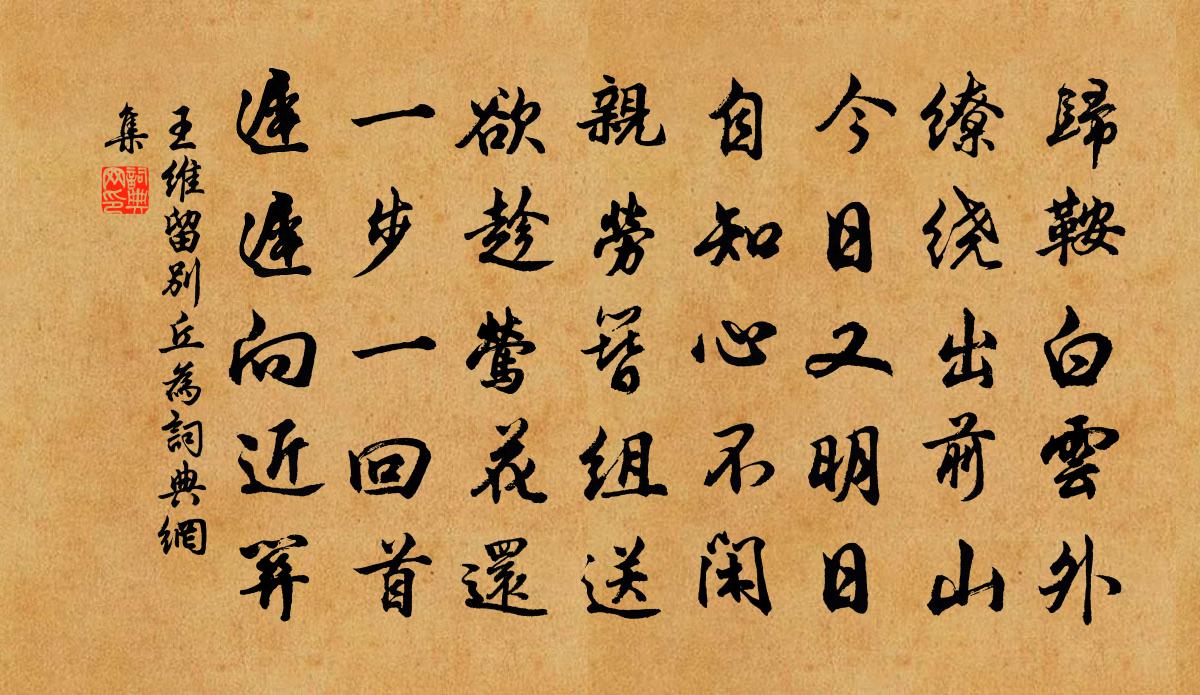 歸鞍白雲外
缭绕出前山
今日又明日
自知心不閑
親勞簪組送
欲趁鶯花還
一步一回首
遲遲向近關
王維留別丘為詞典網
集
詞典
网印